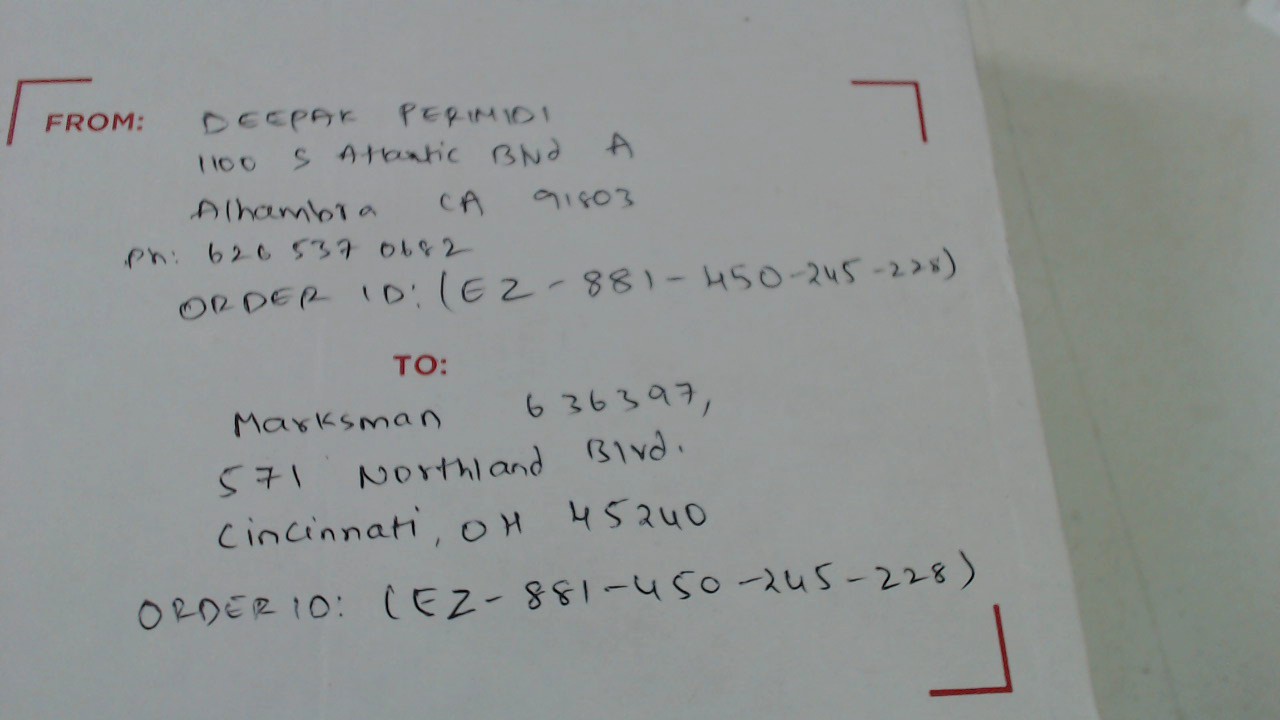 FROM: DEEPAK PERIMIDI
1100 S Atlantic Blvd A
Alhambra CA 91803
Ph: 626 537 0682
ORDER ID: (EZ-881-450-245-228)
TO:
Marksman 636397,
571 Northland Blvd.
Cincinnati, OH 45240
ORDER ID: (EZ-881-450-245-228)